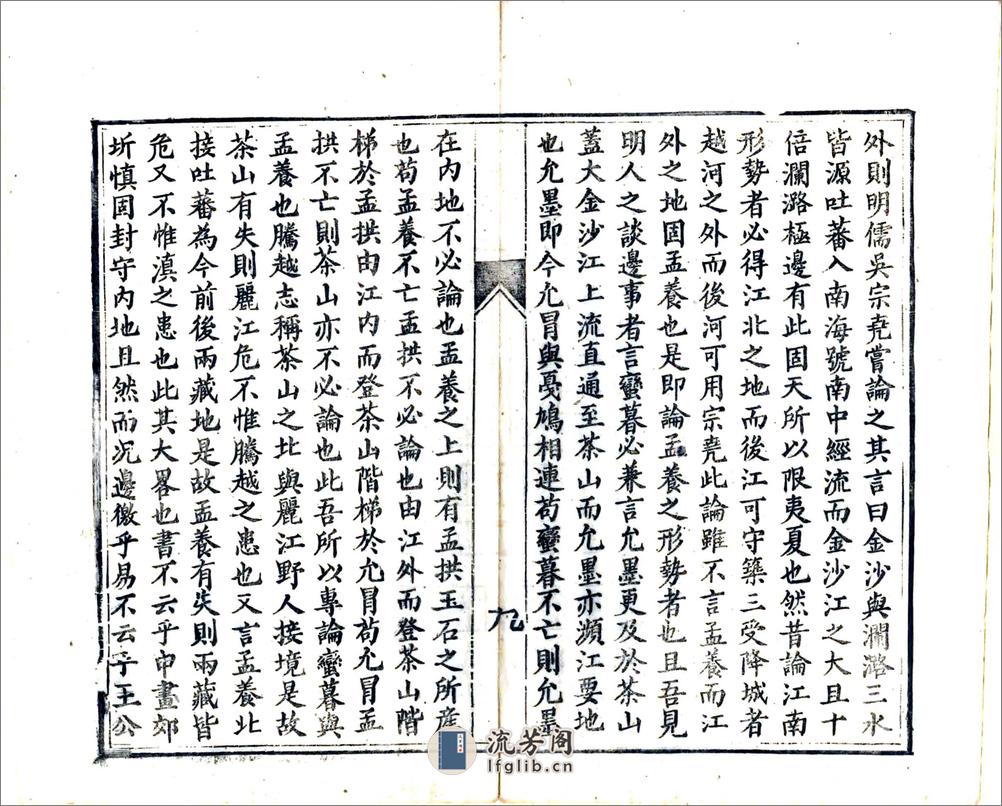 外則明儒吳宗堯嘗論之其言曰金沙與瀾潞三水
皆源吐蕃入南海號南中經流而金沙江之大且十
倍瀾潞極邊有此固天所以限夷夏也然昔論江南
形勢者必得江北之地而後江可守築三受降城者
越河之外而後河可用宗堯此論雖不言孟養而江
外之地固孟養也是即論孟養之形勢者也且吾見
明人之談邊事者言蠻暮必兼言允墨更及於茶山
蓋大金沙江上流直通至茶山而允墨亦瀕江要地
也允墨即今允冒與戞鳩相連苟蠻暮不亡則允墨
九
在內地不必論也孟養之上則有孟拱玉石之所產
也苟孟養不亡孟拱不必論也由江外而登茶山階
梯於孟拱由江內而登茶山階梯於允冒苟允冒孟
拱不亡則茶山亦不必論也此吾所以專論蠻暮與
孟養也騰越志稱茶山之北與麗江野人接境是故
茶山有失則麗江危不惟騰越之患也又言孟養北
接吐蕃為今前後兩藏地是故孟養有失則兩藏皆
危又不惟滇之患也此其大畧也書不云乎申畫郊
圻慎固封守內地且然而况邊徼乎易不云乎王公
流芳阁
lfglib.cn